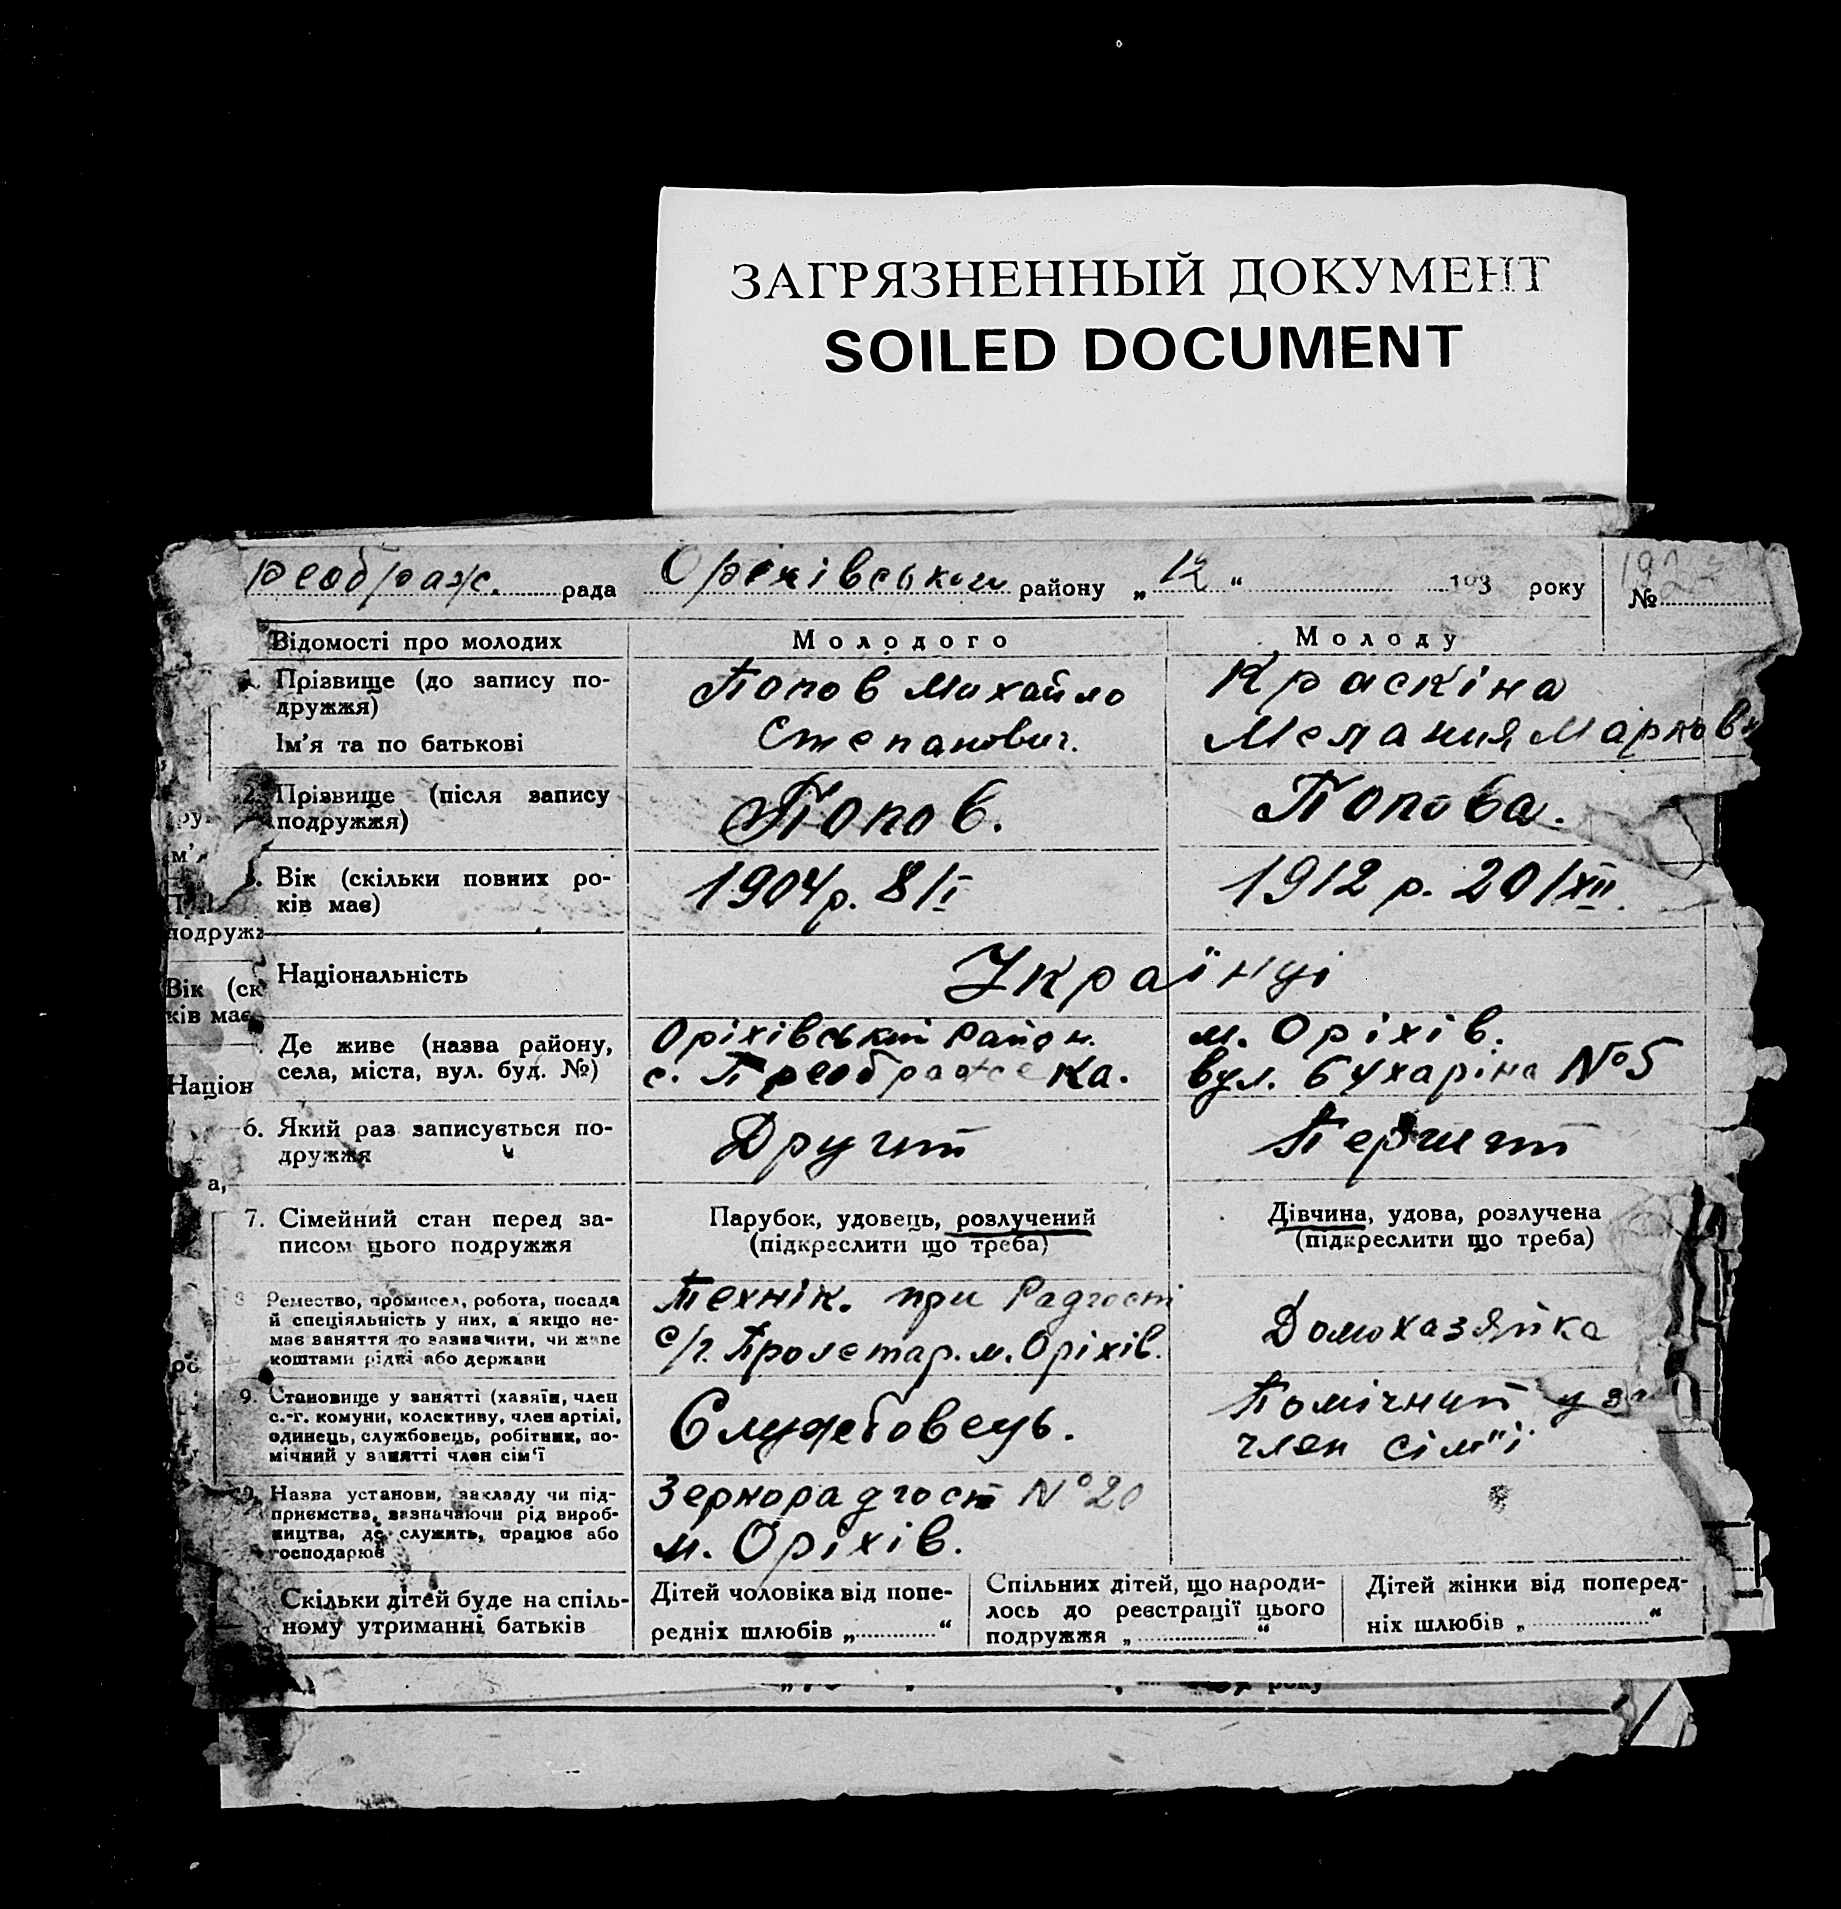 ЗАГРЯЗНЕННЫЙ ДОКУМЕНТ
SOILED DOCUMENT
реображс. рада Оріхівського району „ 12 “ 193 року №
Відомості про молодих
Молодого
Молоду
Прізвище (до запису по-
дружжя)
Ім'я та по батькові
Попов Михайло
Степанович.
Краскіна
Мелания Марков
2. Прізвище (після запису
подружжя)
Попов.
Попова.
Вік (скільки повних ро-
ків має)
1904 р. 8/I
1912 р. 20/XII.
Національність
Українці
Де живе (назва району,
села, міста, вул. буд. №)
Оріхівський район.
с. Преображенка.
м. Оріхів.
вул. Бухаріна №5
6. Який раз записується по-
дружжя
Другий
Перший
7. Сімейний стан перед за-
писом цього подружжя
Парубок, удовець, розлучений
(підкреслити що треба)
Дівчина, удова, розлучена
(підкреслити що треба)
8 Ремество, промисел, робота, посада
й спеціяльність у них, а якщо не-
має заняття то зазначити, чи живе
коштами рідні або держави
Технік. при Радгоспі
с/г. Пролетар. м. Оріхів.
Домохазяйка
9. Становище у занятті (хазяїн, член
с.-г. комуни, колективу, член артілі,
одинець, службовець, робітник, по-
мічний у занятті член сім'ї
Службовець.
Помічний у за
член сім"ї
Назва установи, закладу чи під-
приємства, зазначаючи рід вироб-
ництва, де служить, працює або
господарює
Зернорадгосп №20
м. Оріхів.
Скільки дітей буде на спіль-
ному утриманні батьків
Дітей чоловіка від попе-
редніх шлюбів „ “
Спільних дітей, що народи-
лось до реєстрації цього
подружжя „ “
Дітей жінки від поперед-
ніх шлюбів „ “
подруж
Вік (ск
ків має
Націон
а,
року